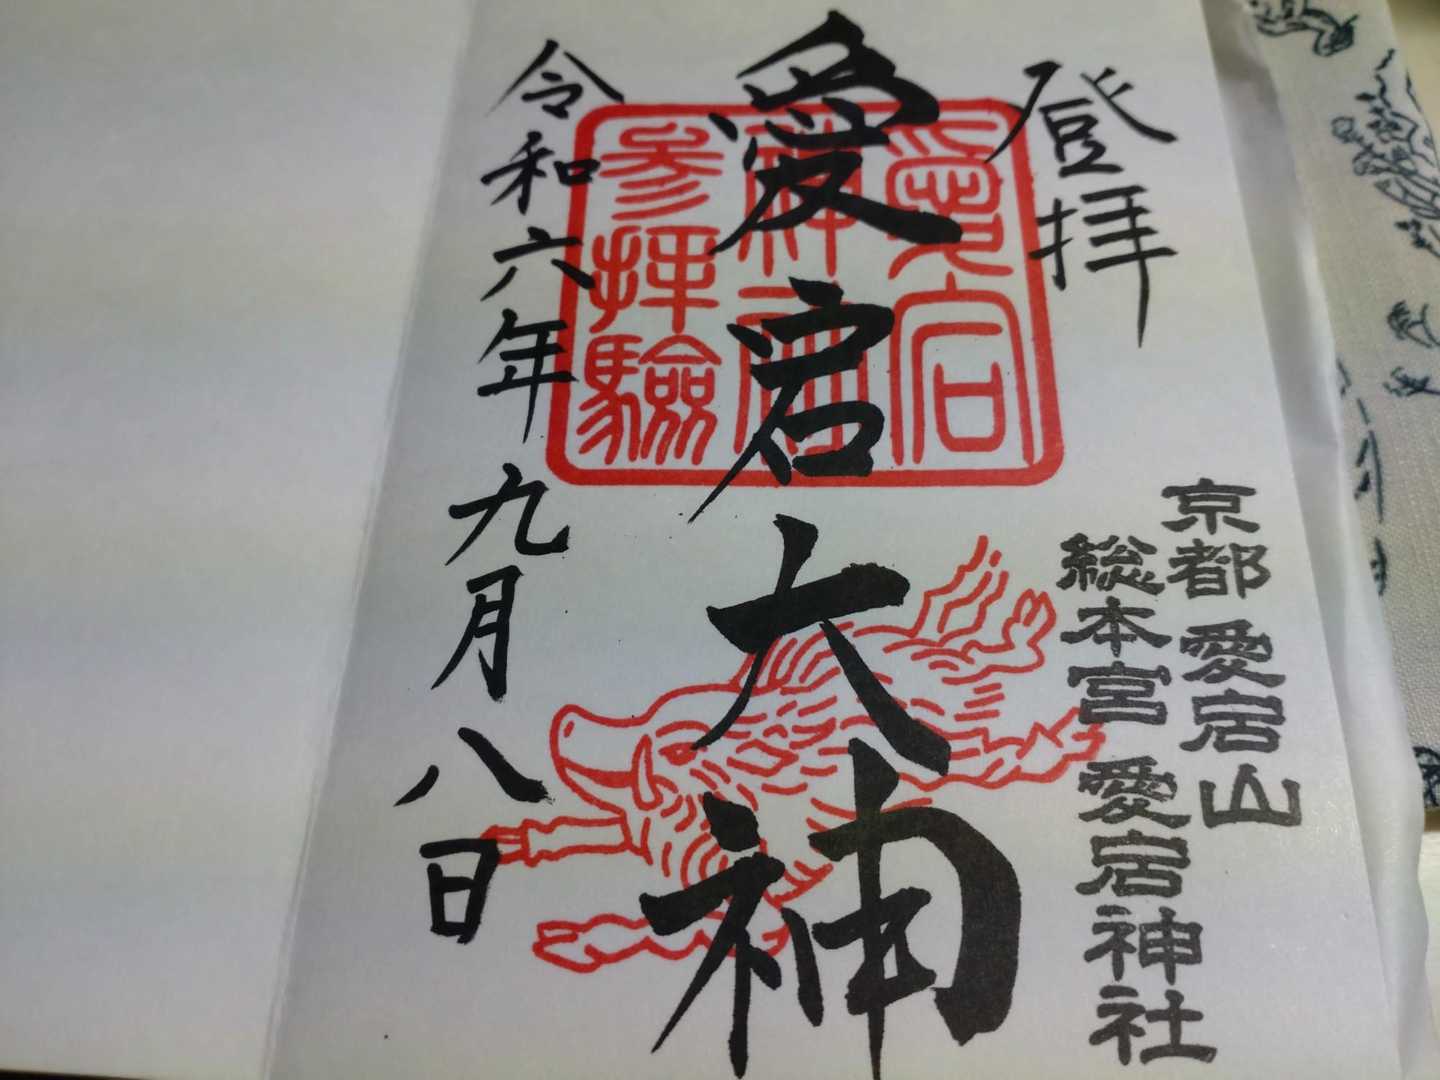 登拝
京都 愛宕山
総本宮 愛宕神社
愛宕大神
愛宕
神社
参拝験
令和六年九月八日